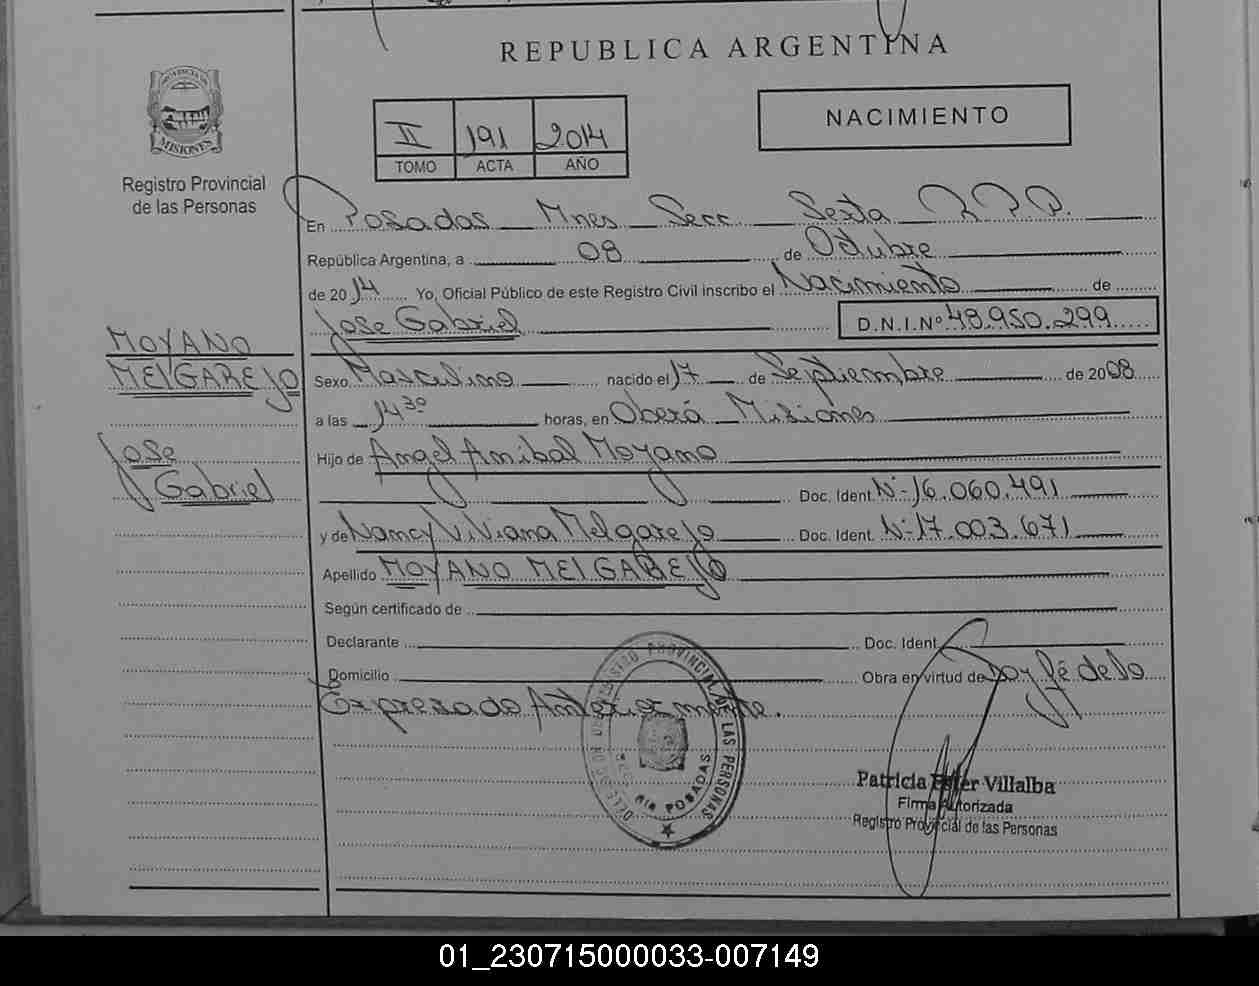 REPUBLICA ARGENTINA
II 191 2014
TOMO ACTA AÑO
NACIMIENTO
MISIONES
Registro Provincial
de las Personas
En Posadas Mnes Secc. Sexta R.P.P.
República Argentina, a 08 de Octubre
de 2014 Yo, Oficial Público de este Registro Civil inscribo el Nacimiento de
Jose Gabriel D.N.I.Nº 48.950.299
MOYANO
MELGAREJO
Sexo Masculino nacido el 17 de Septiembre de 2008
a las 14 30 horas, en Oberá Misiones
Jose
Gabriel
Hijo de Angel Anibal Moyano
Doc. Ident. Nº 16.060.491
y de Nancy Viviana Melgarejo Doc. Ident. Nº 17.003.671
Apellido MOYANO MELGAREJO
Según certificado de
Declarante Doc. Ident.
Domicilio Obra en virtud de Doy fé de lo
Expresado Anteriormente.
REGISTRO PROVINCIAL DE LAS PERSONAS
POSADAS
Patricia Ester Villalba
Firma Autorizada
Registro Provincial de las Personas
01_230715000033-007149